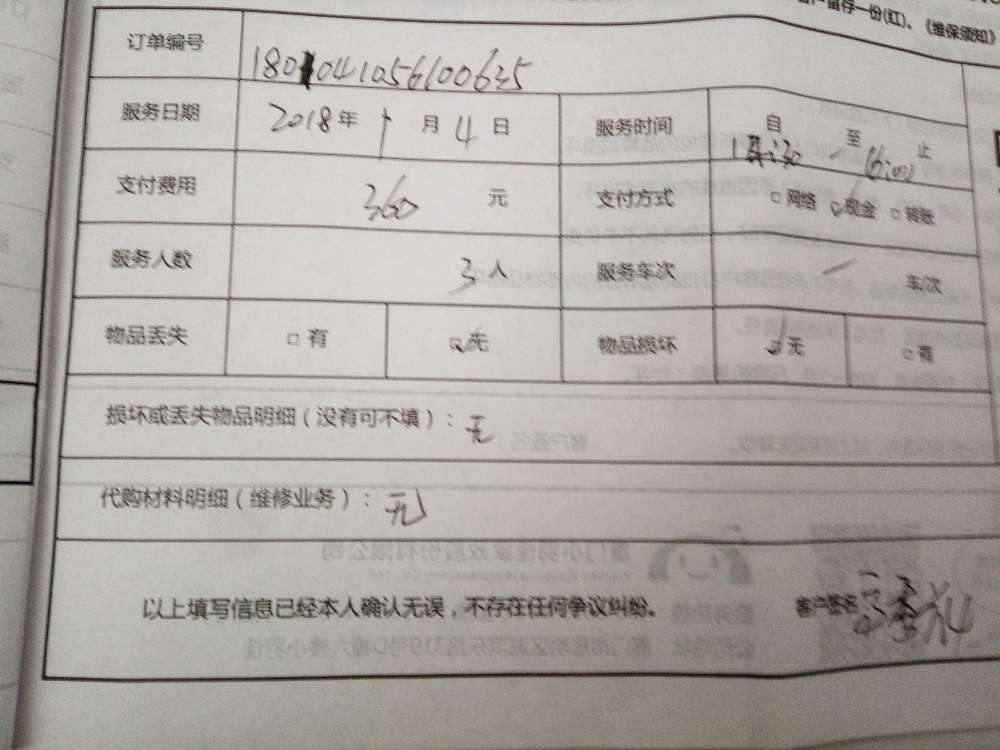 户留存一份(红)、《维保须知》
订单编号 1801041056100635
服务日期 2018年 1月 4日 服务时间 自 :30 至 16:00 止
支付费用 360 元 支付方式 □网络 ☑现金 □转账
服务人数 3人 服务车次 / 车次
物品丢失 □有 ☑无 物品损坏 ☑无 □有
损坏或丢失物品明细(没有可不填):无
代购材料明细(维修业务):无
以上填写信息已经本人确认无误,不存在任何争议纠纷。 客户签名